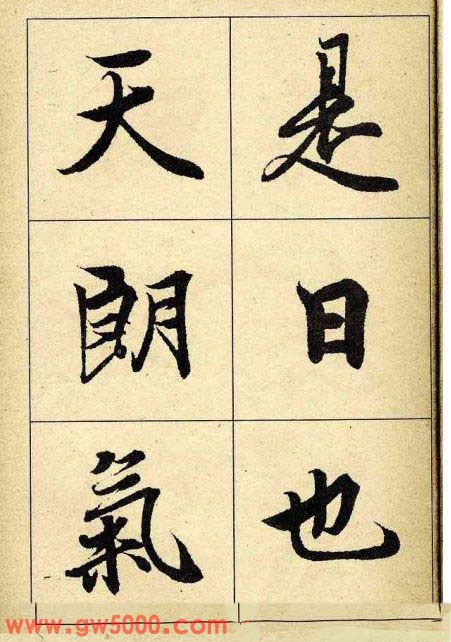 是日也
天朗氣
www.gw5000.com